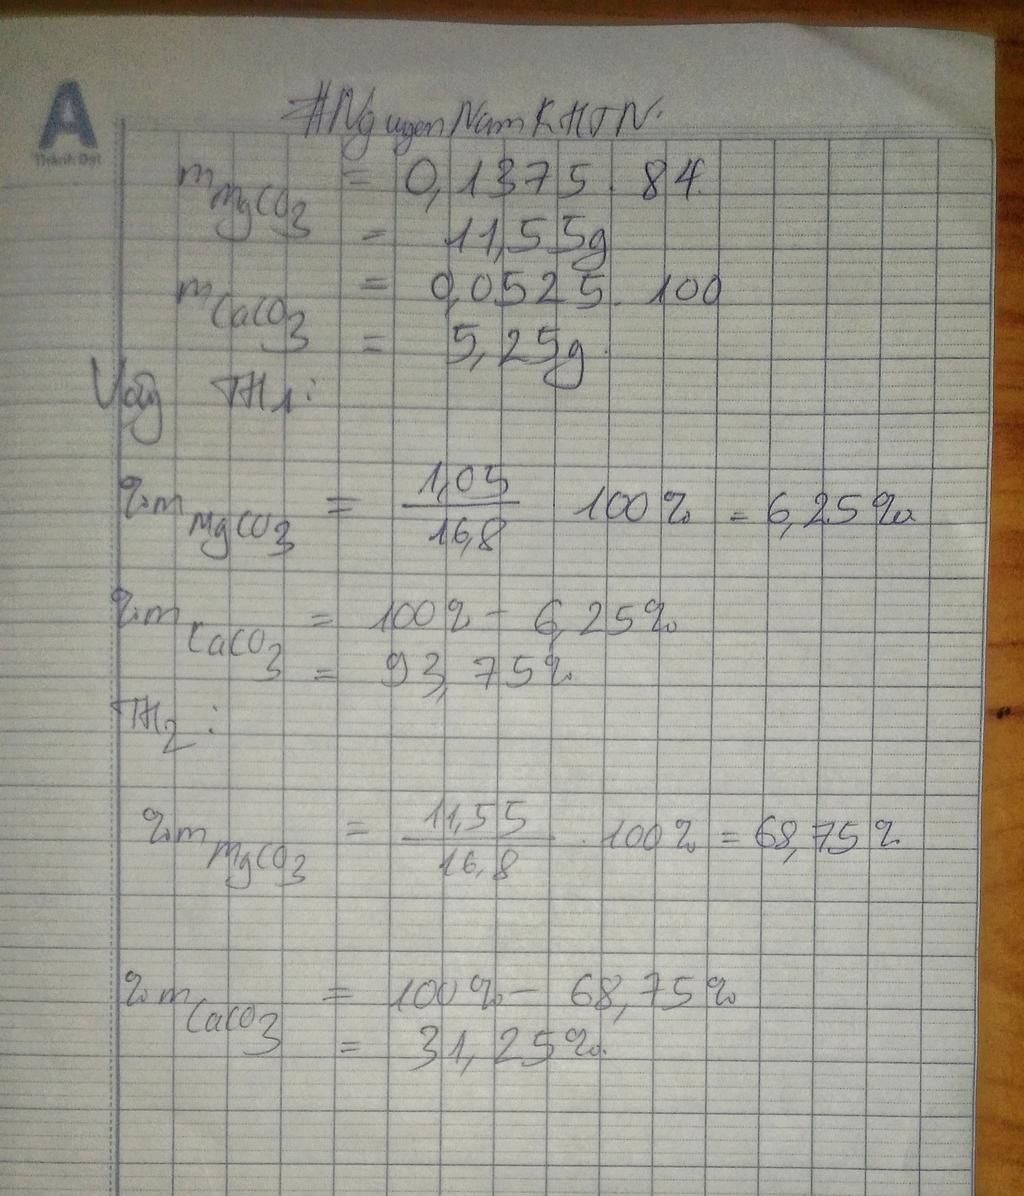 A
Thành Đạt
#NguyenNamKHTN.
mMgCO3 = 0,1375 . 84
= 11,55g
mCaCO3 = 0,0525 . 100
= 5,25g.
Vậy TH1:
%mMgCO3 = 1,05/16,8 100% = 6,25%
%mCaCO3 = 100% - 6,25%
= 93,75%
TH2:
%mMgCO3 = 11,55/16,8 . 100% = 68,75%
%mCaCO3 = 100% - 68,75%
= 31,25%.